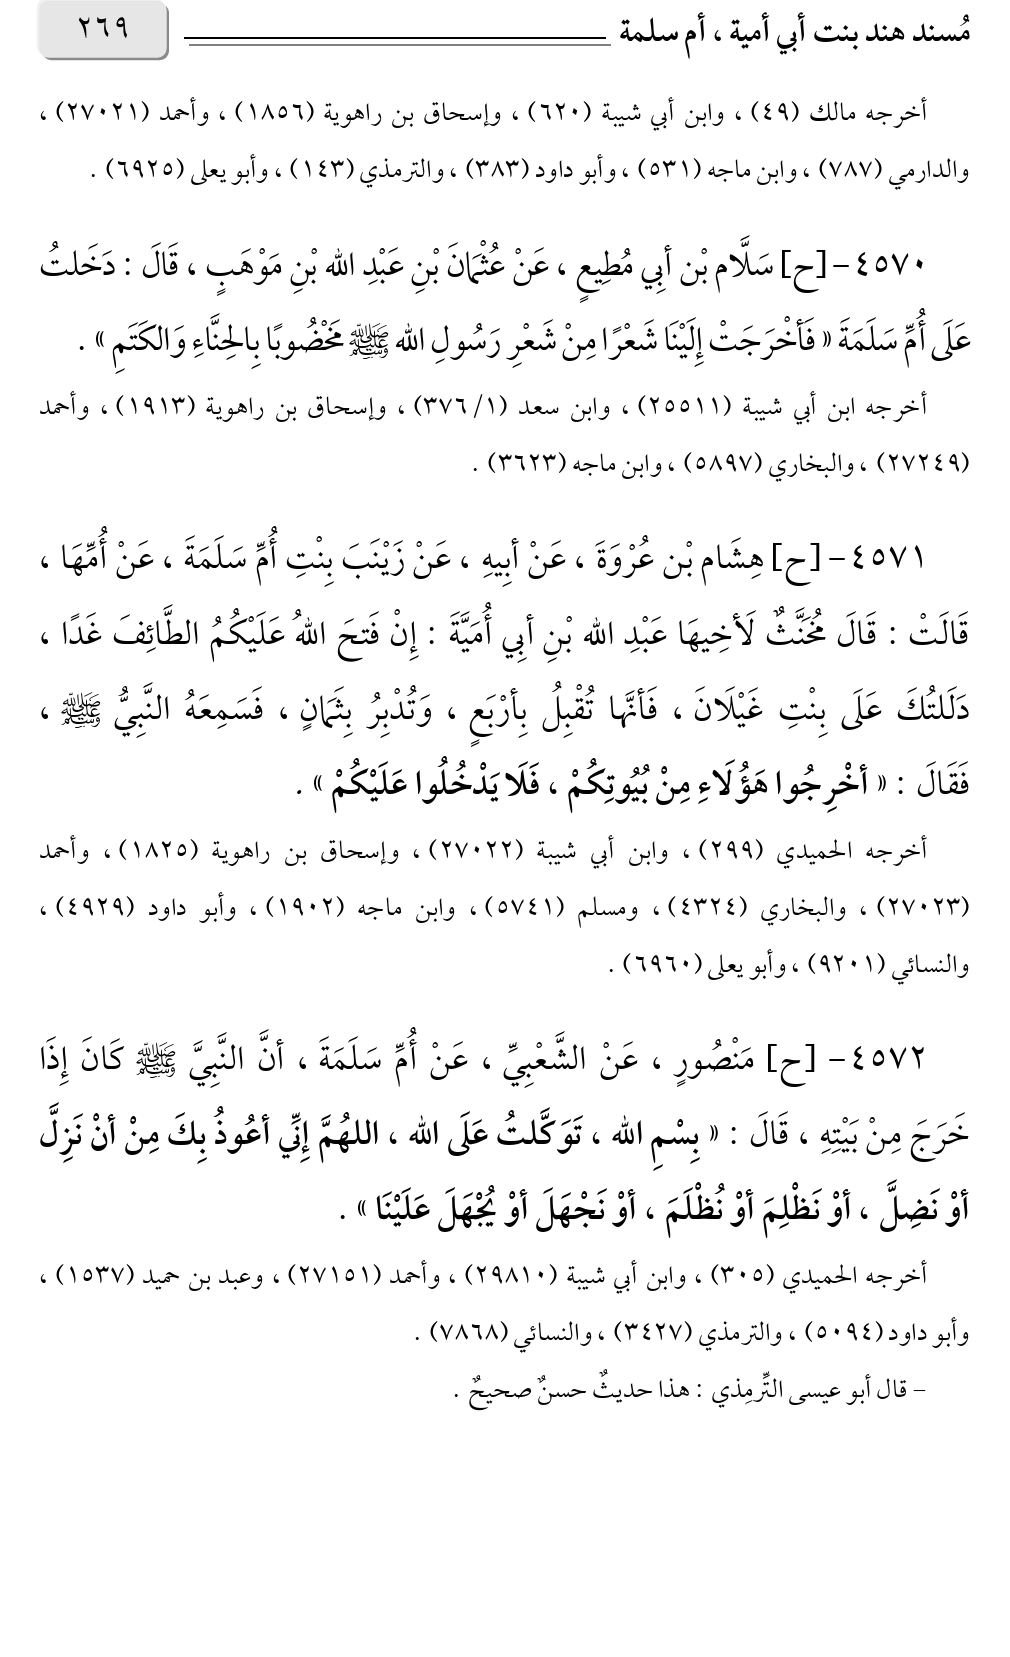 مُسند هند بنت أبي أمية ، أم سلمة ٢٦٩
أخرجه مالك (٤٩) ، وابن أبي شيبة (٦٢٠) ، وإسحاق بن راهوية (١٨٥٦) ، وأحمد (٢٧٠٢١) ،
والدارمي (٧٨٧) ، وابن ماجه (٥٣١) ، وأبو داود (٣٨٣) ، والترمذي (١٤٣) ، وأبو يعلى (٦٩٢٥) .
٤٥٧٠- [ح] سَلَّام بْن أبِي مُطِيعٍ ، عَنْ عُثْمَانَ بْنِ عَبْدِ الله بْنِ مَوْهَبٍ ، قَالَ : دَخَلتُ
عَلَى أُمِّ سَلَمَةَ « فَأخْرَجَتْ إِلَيْنَا شَعْرًا مِنْ شَعْرِ رَسُولِ الله ﷺ مَخْضُوبًا بِالحِنَّاءِ وَالكَتَمِ » .
أخرجه ابن أبي شيبة (٢٥٥١١) ، وابن سعد (١/ ٣٧٦) ، وإسحاق بن راهوية (١٩١٣) ، وأحمد
(٢٧٢٤٩) ، والبخاري (٥٨٩٧) ، وابن ماجه (٣٦٢٣) .
٤٥٧١- [ح] هِشَام بْن عُرْوَةَ ، عَنْ أبِيهِ ، عَنْ زَيْنَبَ بِنْتِ أُمِّ سَلَمَةَ ، عَنْ أُمِّهَا ،
قَالَتْ : قَالَ مُخَنَّثٌ لَأخِيهَا عَبْدِ الله بْنِ أبِي أُمَيَّةَ : إِنْ فَتحَ اللهُ عَلَيْكُمُ الطَّائِفَ غَدًا ،
دَلَلتُكَ عَلَى بِنْتِ غَيْلَانَ ، فَأنَّها تُقْبِلُ بِأرْبَعٍ ، وَتُدْبِرُ بِثَمَانٍ ، فَسَمِعَهُ النَّبِيُّ ﷺ ،
فَقَالَ : « أخْرِجُوا هَؤُلَاءِ مِنْ بُيُوتِكُمْ ، فَلَا يَدْخُلُوا عَلَيْكُمْ » .
أخرجه الحميدي (٢٩٩) ، وابن أبي شيبة (٢٧٠٢٢) ، وإسحاق بن راهوية (١٨٢٥) ، وأحمد
(٢٧٠٢٣) ، والبخاري (٤٣٢٤) ، ومسلم (٥٧٤١) ، وابن ماجه (١٩٠٢) ، وأبو داود (٤٩٢٩) ،
والنسائي (٩٢٠١) ، وأبو يعلى (٦٩٦٠) .
٤٥٧٢- [ح] مَنْصُورٍ ، عَنْ الشَّعْبِيِّ ، عَنْ أُمِّ سَلَمَةَ ، أنَّ النَّبِيَّ ﷺ كَانَ إِذَا
خَرَجَ مِنْ بَيْتِهِ ، قَالَ : « بِسْمِ الله ، تَوَكَّلتُ عَلَى الله ، اللهُمَّ إِنِّي أعُوذُ بِكَ مِنْ أنْ نَزِلَّ
أوْ نَضِلَّ ، أوْ نَظْلِمَ أوْ نُظْلَمَ ، أوْ نَجْهَلَ أوْ يُجْهَلَ عَلَيْنَا » .
أخرجه الحميدي (٣٠٥) ، وابن أبي شيبة (٢٩٨١٠) ، وأحمد (٢٧١٥١) ، وعبد بن حميد (١٥٣٧) ،
وأبو داود (٥٠٩٤) ، والترمذي (٣٤٢٧) ، والنسائي (٧٨٦٨) .
– قال أبو عيسى التِّرمِذي : هذا حديثٌ حسنٌ صحيحٌ .